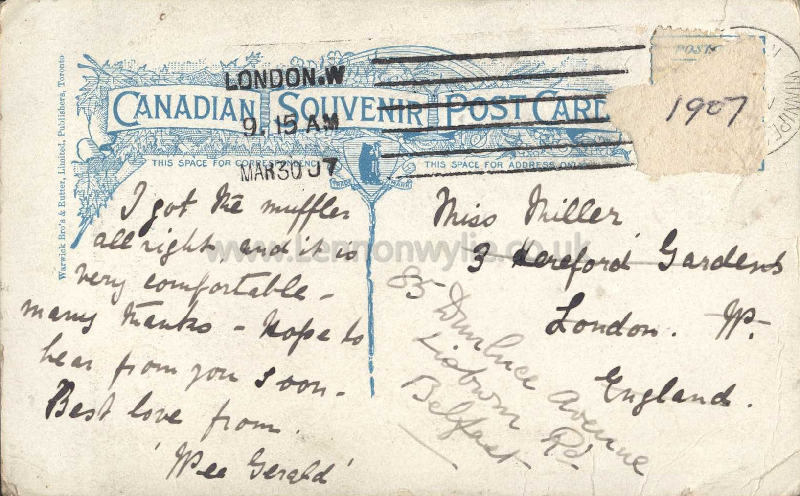 LONDON.W
9.15 AM
MAR 30 07
CANADIAN SOUVENIR POST CARD
THIS SPACE FOR CORRESPONDENCE
THIS SPACE FOR ADDRESS ONLY
Warwick Bro's & Rutter, Limited, Publishers, Toronto
TRADE MARK
POST
1907
WINNIPE
I got the muffler
all right and it is
very comfortable -
many thanks - Hope to
hear from you soon -
Best love from
'Wee Gerald'
Miss Miller
3 Hereford Gardens
London. W.
England.
85 Dunluce Avenue
Lisburn Rd.
Belfast
www.Lennonwylie.co.uk